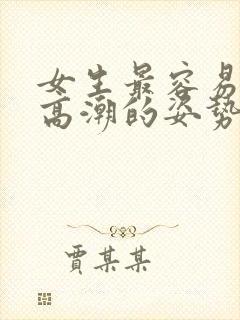 女生最容易
高潮的姿势
賈某某